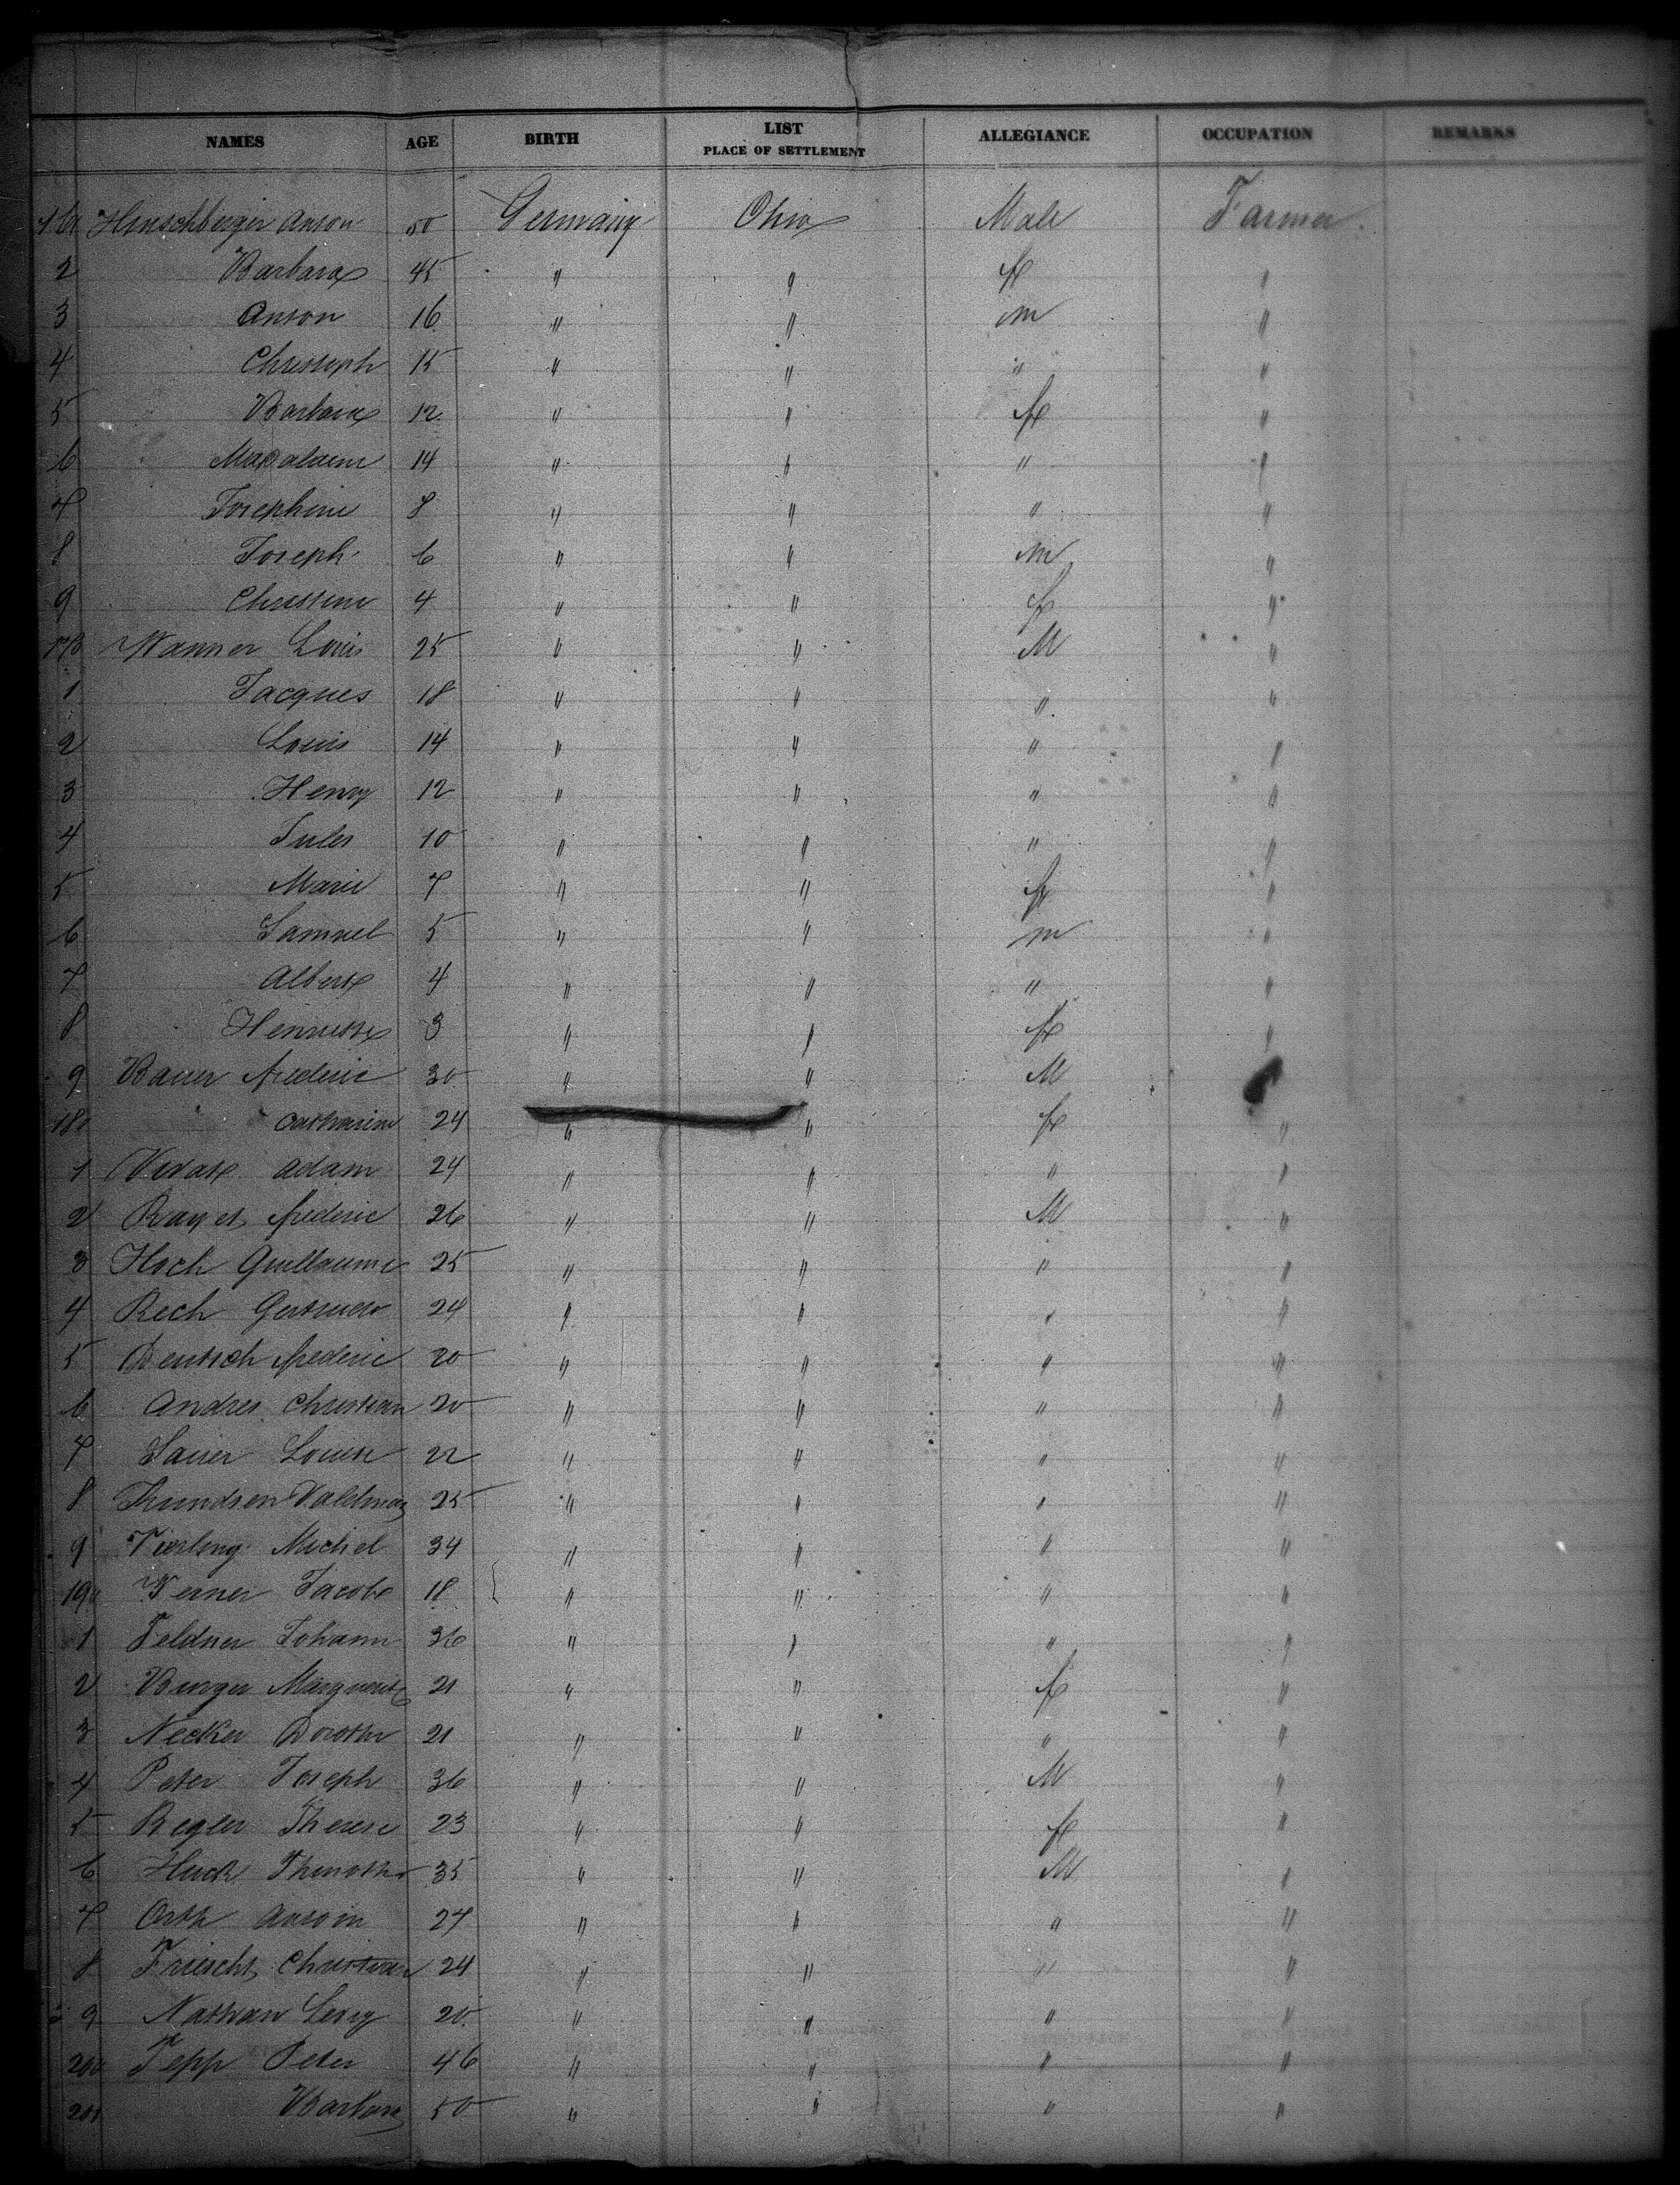 NAMES AGE BIRTH LIST PLACE OF SETTLEMENT ALLEGIANCE OCCUPATION REMARKS
161 Hirschberger Anton 50 Germany Ohio Male Farmer
2 Barbara 45 " " f "
3 Anton 16 " " m "
4 Christoph 15 " " " "
5 Barbara 12 " " f "
6 14 " " " "
7 Josephine 8 " " " "
8 Joseph 6 " " m "
9 Christine 4 " " f "
170 Wanner Louis 25 " " M "
1 Jacques 18 " " " "
2 Louis 14 " " " "
3 Henry 12 " " " "
4 Jules 10 " " " "
5 Marie 7 " " f "
6 Samuel 5 " " m "
7 Albert 4 " " " "
8 3 " " f "
9 Bauer frederic 30 " " M
180 Catharine 24 " " f "
1 Adam 24 " " " "
2 frederic 26 " " M "
3 Guillaume 25 " " " "
4 Rech 24 " " " "
5 Deutsch frederic 20 " " " "
6 Andres Christian 20 " " " "
7 Sauer Louise 22 " " " "
8 25 " " " "
9 Michel 34 " " " "
190 Verner Jacob 18 " " " "
1 Feldner Johann 36 " " " "
2 Burger Marguerite 21 " " f "
3 Necker 21 " " " "
4 Peter Joseph 36 " " M "
5 Regler Therese 23 " " f "
6 Huck 35 " " M "
7 Orth 27 " " " "
8 Christian 24 " " " "
9 Nathan Levy 20 " " " "
200 Jepp Peter 46 " " " "
201 Barbara 50 " " " "